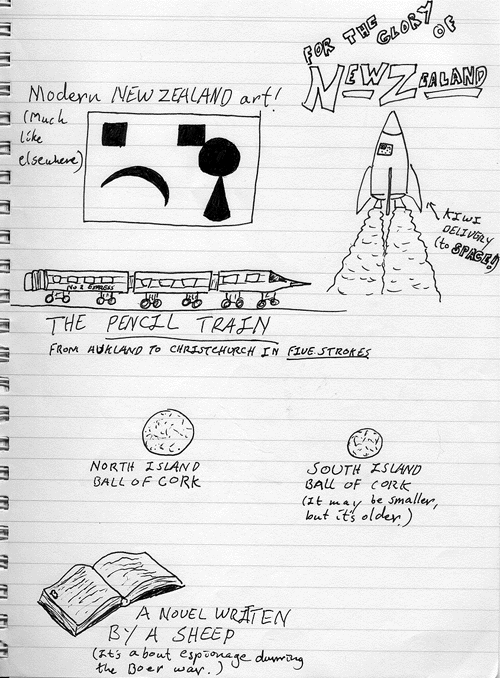 FOR THE GLORY OF
NEW ZEALAND
Modern NEW ZEALAND art!
(Much
like
elsewhere)
KIWI
DELIVERY
(to SPACE!)
No 2 EXPRESS
THE PENCIL TRAIN
FROM AUKLAND TO CHRISTCHURCH IN FIVE STROKES
NORTH ISLAND
BALL OF CORK
SOUTH ISLAND
BALL OF CORK
(It may be smaller,
but it's older.)
A NOVEL WRITTEN
BY A SHEEP
(It's about espionage durring
the Boer war.)